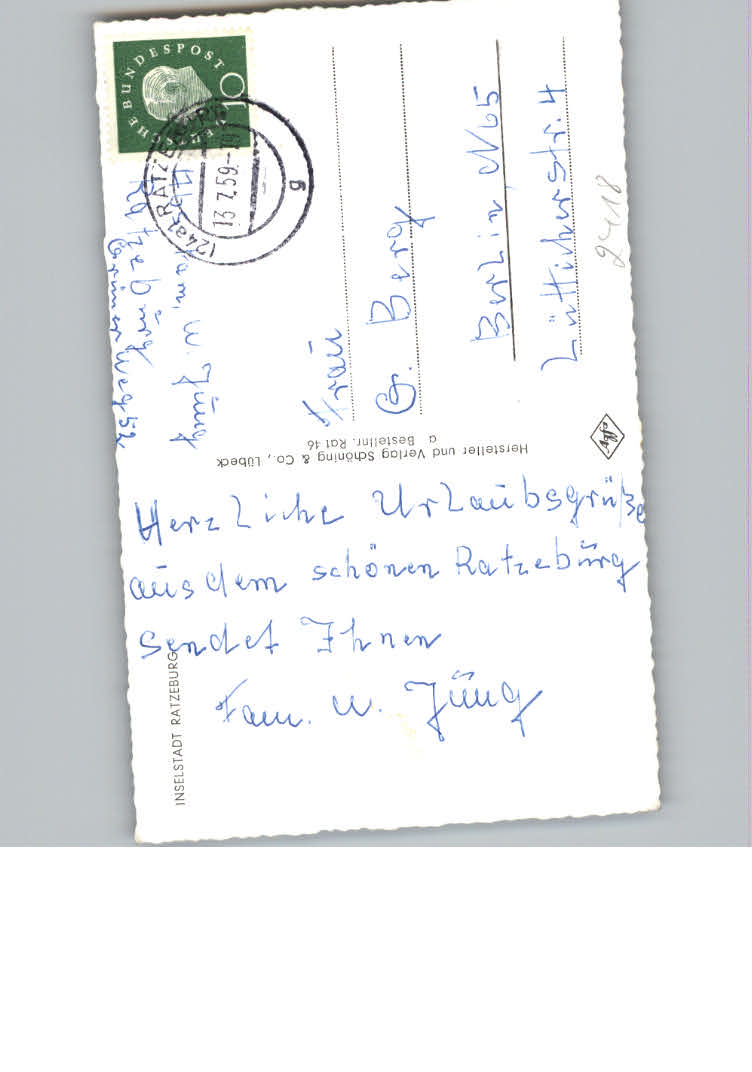 Herzliche Urlaubsgrüße
aus dem schönen Ratzeburg
sendet Ihnen
Fam. W. Jüng
INSELSTADT RATZEBURG
Hersteller und Verlag Schöning & Co., Lübeck
a Bestellnr. Rat 46
Agfa
Frau
G. Berg
Berlin N65
Lütticherstr. 4
2418
Fam. W. Jüng
Ratzeburg
Grüner Weg 52
BUNDESPOST
10
(24a) RATZEBURG
13.7.59
g